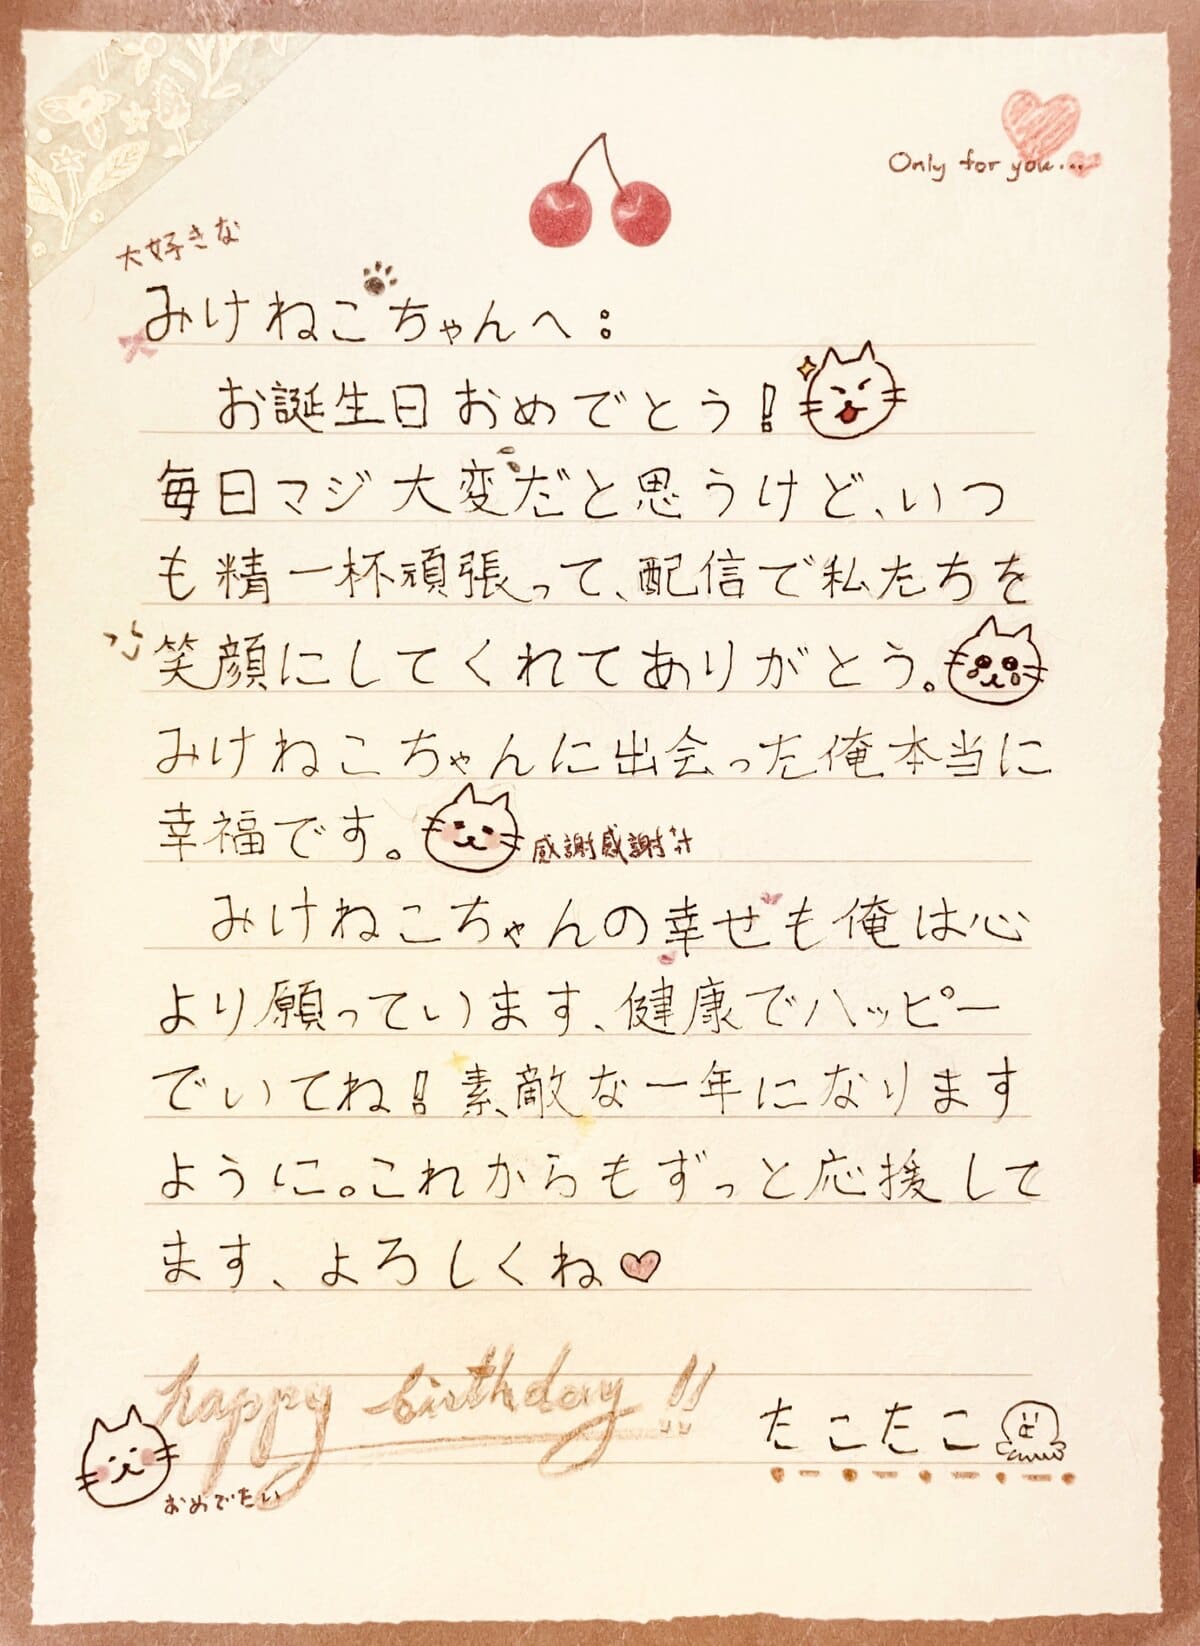 Only for you...
大好きな
みけねこちゃんへ:
お誕生日おめでとう!
毎日マジ大変だと思うけど、いつ
も精一杯頑張って、配信で私たちを
笑顔にしてくれてありがとう。
みけねこちゃんに出会った俺本当に
幸福です。
感謝感謝
みけねこちゃんの幸せも俺は心
より願っています、健康でハッピー
でいてね!素敵な一年になります
ように。これからもずっと応援して
ます、よろしくね♡
happy birthday!!
たこたこ
おめでたい